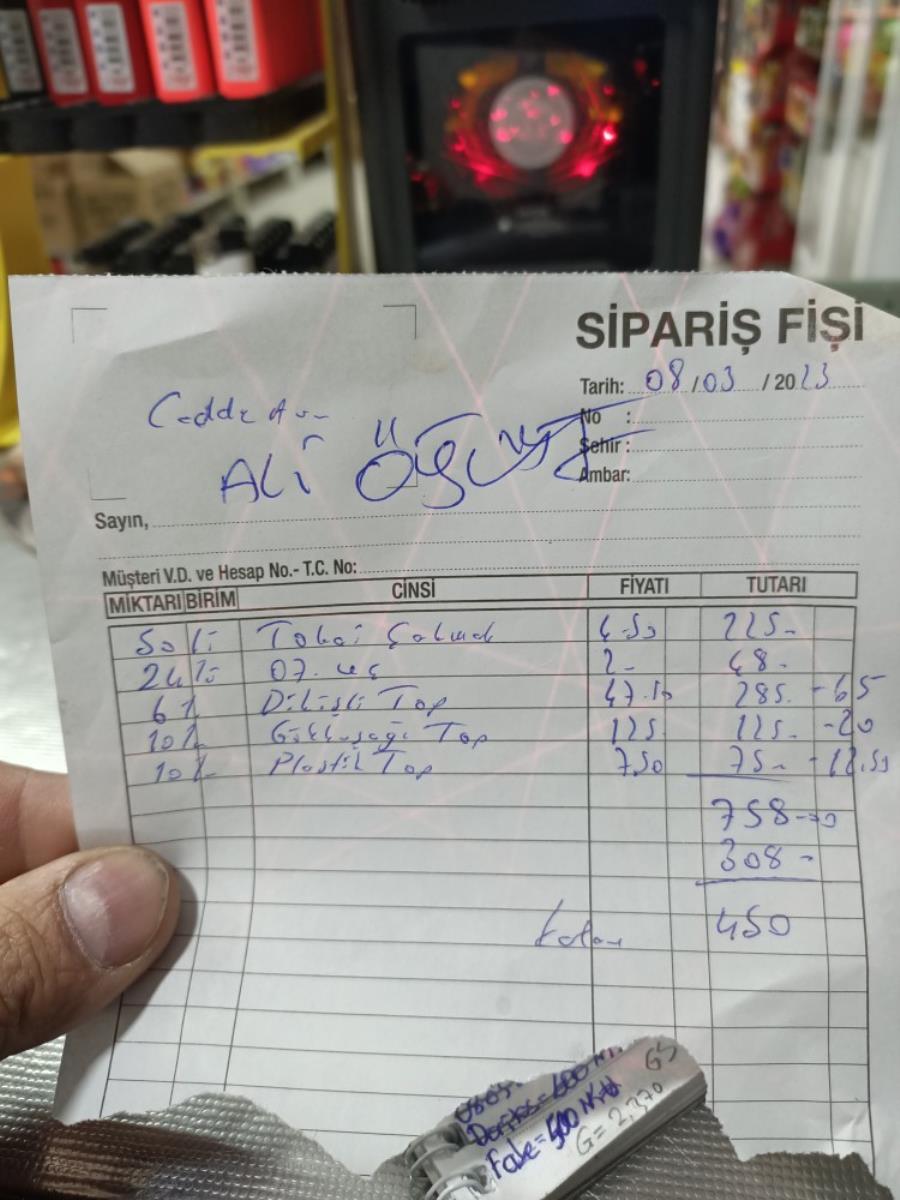 SİPARİŞ FİŞİ
Tarih: 08/03/2023
No :
Şehir :
Ambar:
ALİ
Sayın,
Müşteri V.D. ve Hesap No.- T.C. No:
MİKTARI BİRİM CİNSİ FİYATI TUTARI
50 Tokai Çakmak 4.50 225.-
24 07. uç 2- 48-
6 Dikişli Top 47.50 285. -65
10 Gökkuşağı Top 125. 125. -20
10 Plastik Top 7.50 75.- -12.50
758
308-
kalan 450
Fale=500
G=2,370
GS